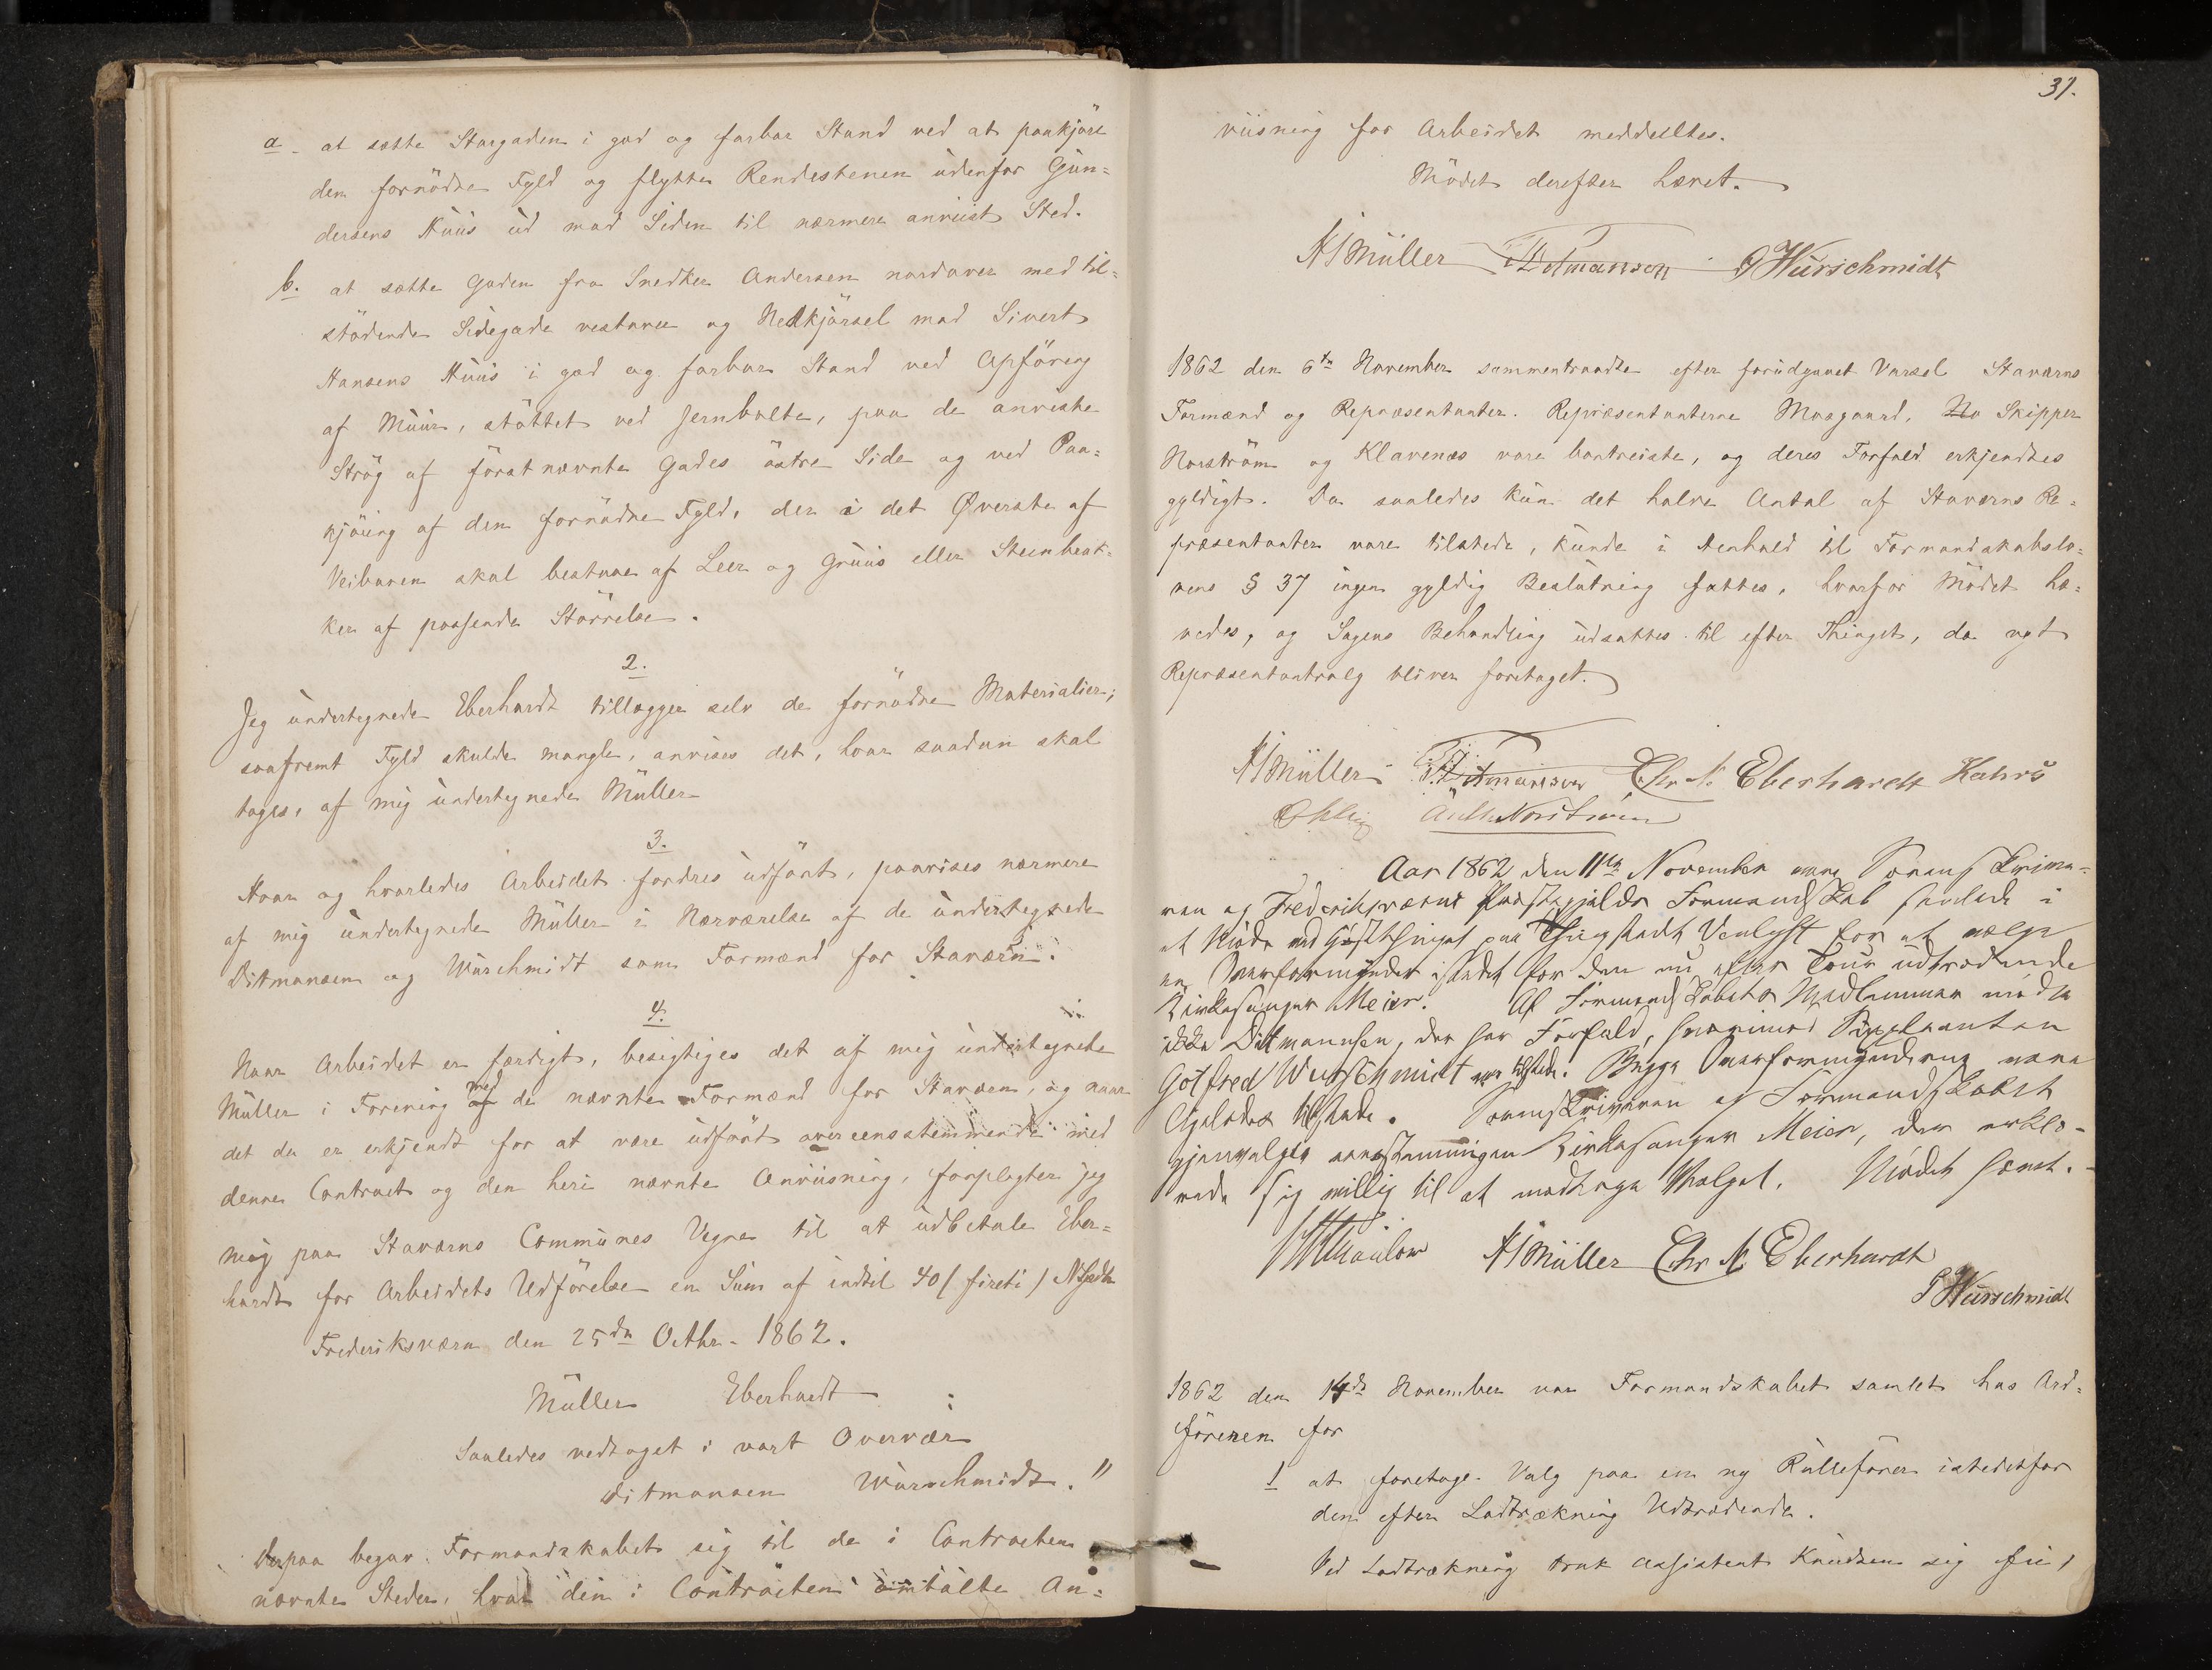 a at sætte Storgaden i god og farbar Stand ved at paakjøre
den fornødne Fyld og flytte Rendestenen udenfor Gun-
dersens Huus ud mod Siden til nærmere anviist Sted.
b. at sætte Gaden fra Snedker Andersen nordover med til-
stødende Sidegade vestover og Nedkjørsel mod Sivert
Hansens Huus i god og farbar Stand ved Opføring
af Muur, støttet ved Jernbolte, paa de anviste
Strøg af førstnævnte Gades østre Side og ved Paa-
kjøring af den fornødne Fyld, der i det Øverste af
Veibanen skal bestaae af Leer og Gruus eller Steenbrok-
ker af passende Størrelse.
2.
Jeg undertegnede Eberhardt tillægger selv de fornødne Materialier;
saafremt Fyld skulde mangle, anvises det, hvor saadan skal
tages, af mig undertegnede Müller
3.
Hvor og hvorledes Arbeidet fordres udført, paavises nærmere
af mig undertegnede Müller i Nærværelse af de undertegnede
Ditmansen og Würschmidt som Formænd for Staværn.
4.
Naar Arbeidet er færdigt, besigtiges det af mig undertegnede
Müller i Forening med de nævnte Formænd for Staværn, og naar
det da er erkjendt for at være udført overeensstemmende med
denne Contract og den heri nævnte Anviisning, forpligter jeg
mig paa Staværns Communes Vegne til at udbetale Eber-
hardt for Arbeidets Udførelse en Sum af indtil 40 (fireti)
Frederiksværn den 25de Octbr. 1862.
Müller Eberhardt
Saaledes vedtaget i vort Overvær
Ditmansen Würschmidt."
Derpaa begav Formandskabet sig til de i Contracten
nævnte Steder, hvor den i Contracten omtalte An-
31.
viisning for Arbeidet meddeeltes.
Mødet derefter hævet.
HJMüller Ditmansen GWürschmidt
1862 den 6te November sammentraadte efter forudgaaet Varsel Staværns
Formænd og Repræsentanter. Repræsentanterne Mosgaard, No Skipper
Norstrøm og Klavenæs vare bortreiste, og deres Forfald erkjendtes
gyldigt. Da saaledes kun det halve Antal af Staværns Re-
præsentanter vare tilstede, kunde i Henhold til Formandskabslo-
vens § 37 ingen gyldig Beslutning fattes, hvorfor Mødet hæ-
vedes, og Sagens Behandling udsattes til efter Thinget, da nyt
Repræsentantvalg bliver foretaget.
HJMüller Ditmansen Chr. N. Eberhardt Kahrs
Øhling Norstrøm
Aar 1862 den 11te November vare Sorenskrive-
ren og Frederiksværns Præstegjelds Formandskab samlede i
et Møde ved Høstthinget paa Thingstedet Venlyst for at vælge
en Overformynder istedet for den nu efter Tour udtrædende
Kirkesanger Meier. Af Formandskabets Medlemmer mødte
ikke Ditmansen, der har Forfald, hvorimod Suppleanten
Gotfred Würschmidt var tilstede. Begge Overformynderne vare
ligeledes tilstede. Sorenskriveren og Formandskabet
gjenvalgte eenstemmigen Kirkesanger Meier, der erklæ-
rede sig villig til at modtage Valget. Mødet hævet.
HJMüller Chr. N. Eberhardt
GWürschmidt
1862 den 14de November var Formandskabet samlet hos Ord-
føreren for
1 at foretage Valg paa en ny Rullefører istedetfor
den efter Lodtrækning Udtrædende.
Ved Lodtrækning trak Assistent Knudsen sig fri,